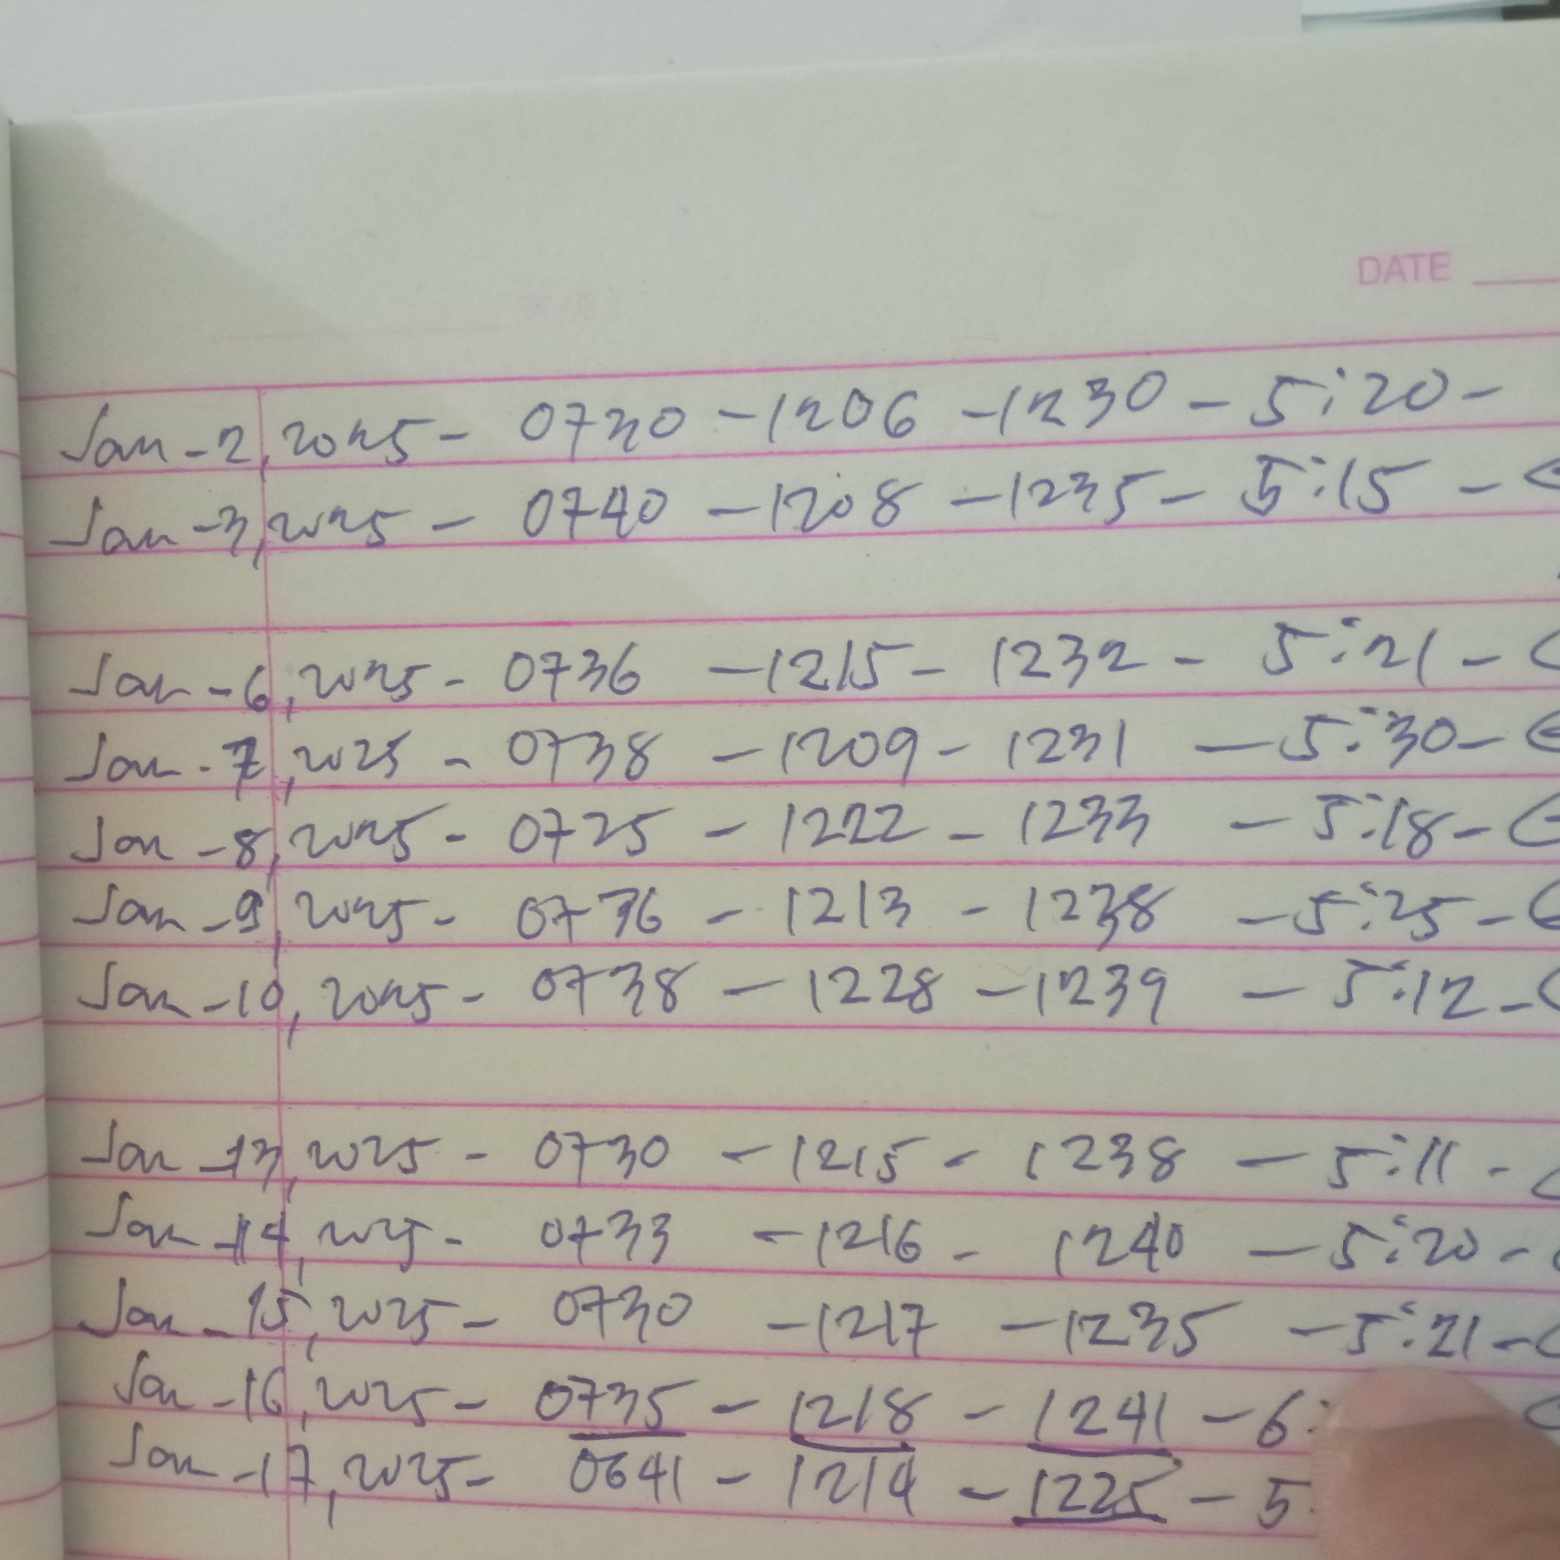 DATE
Jan-2, 2025 - 0730 - 1206 - 1230 - 5:20 -
Jan-3, 2025 - 0740 - 1208 - 1235 - 5:15 -
Jan-6, 2025 - 0736 - 1215 - 1232 - 5:21 -
Jan-7, 2025 - 0738 - 1209 - 1231 - 5:30 -
Jan-8, 2025 - 0725 - 1222 - 1233 - 5:18 -
Jan-9, 2025 - 0736 - 1213 - 1238 - 5:25 -
Jan-10, 2025 - 0738 - 1228 - 1239 - 5:12 -
Jan-13, 2025 - 0730 - 1215 - 1238 - 5:11 -
Jan-14, 2025 - 0733 - 1216 - 1240 - 5:20 -
Jan-15, 2025 - 0730 - 1217 - 1235 - 5:21 -
Jan-16, 2025 - 0735 - 1218 - 1241 - 6:
Jan-17, 2025 - 0641 - 1214 - 1225 - 5